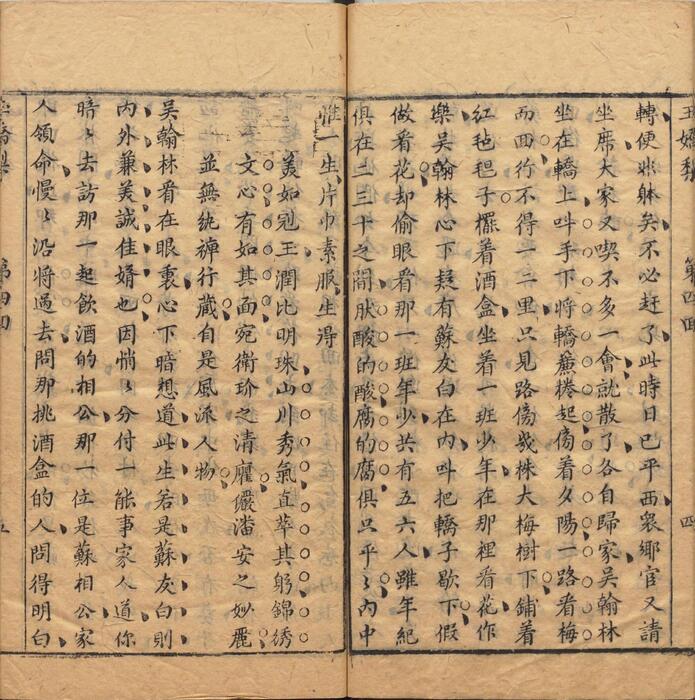 玉嬌梨 第四回 四
轉便難躰矣不必赶了此時日已平西衆鄉官又請
坐席大家又喫不多一會就散了各自歸家吳翰林
坐在轎上呌手下將轎簾捲起傍着夕陽一路看梅
而回行不得一二里只見路傍幾株大梅樹下鋪着
紅毡毡子擺着酒盒坐着一班少年在那裡看花作
樂吳翰林心下疑有蘇友白在內呌把轎子歇下假
做看花却偷眼看那一班年少共有五六人雖年紀
俱在二三十之間肰酸的酸腐的腐俱只平〻內中
惟一生片巾素服生得
美如冠玉潤比明珠山川秀氣直萃其躬錦綉
文心有如其面宛衛玠之清癯儼潘安之妙麗
並無紈褲行藏自是風流人物
吳翰林看在眼裏心下暗想道此生若是蘇友白則
內外兼美誠佳婿也因悄〻分付一能事家人道你
暗〻去訪那一起飲酒的相公那一位是蘇相公家
人領命慢〻沿將過去問那挑酒盒的人問得明白
玉嬌梨 第四回 五